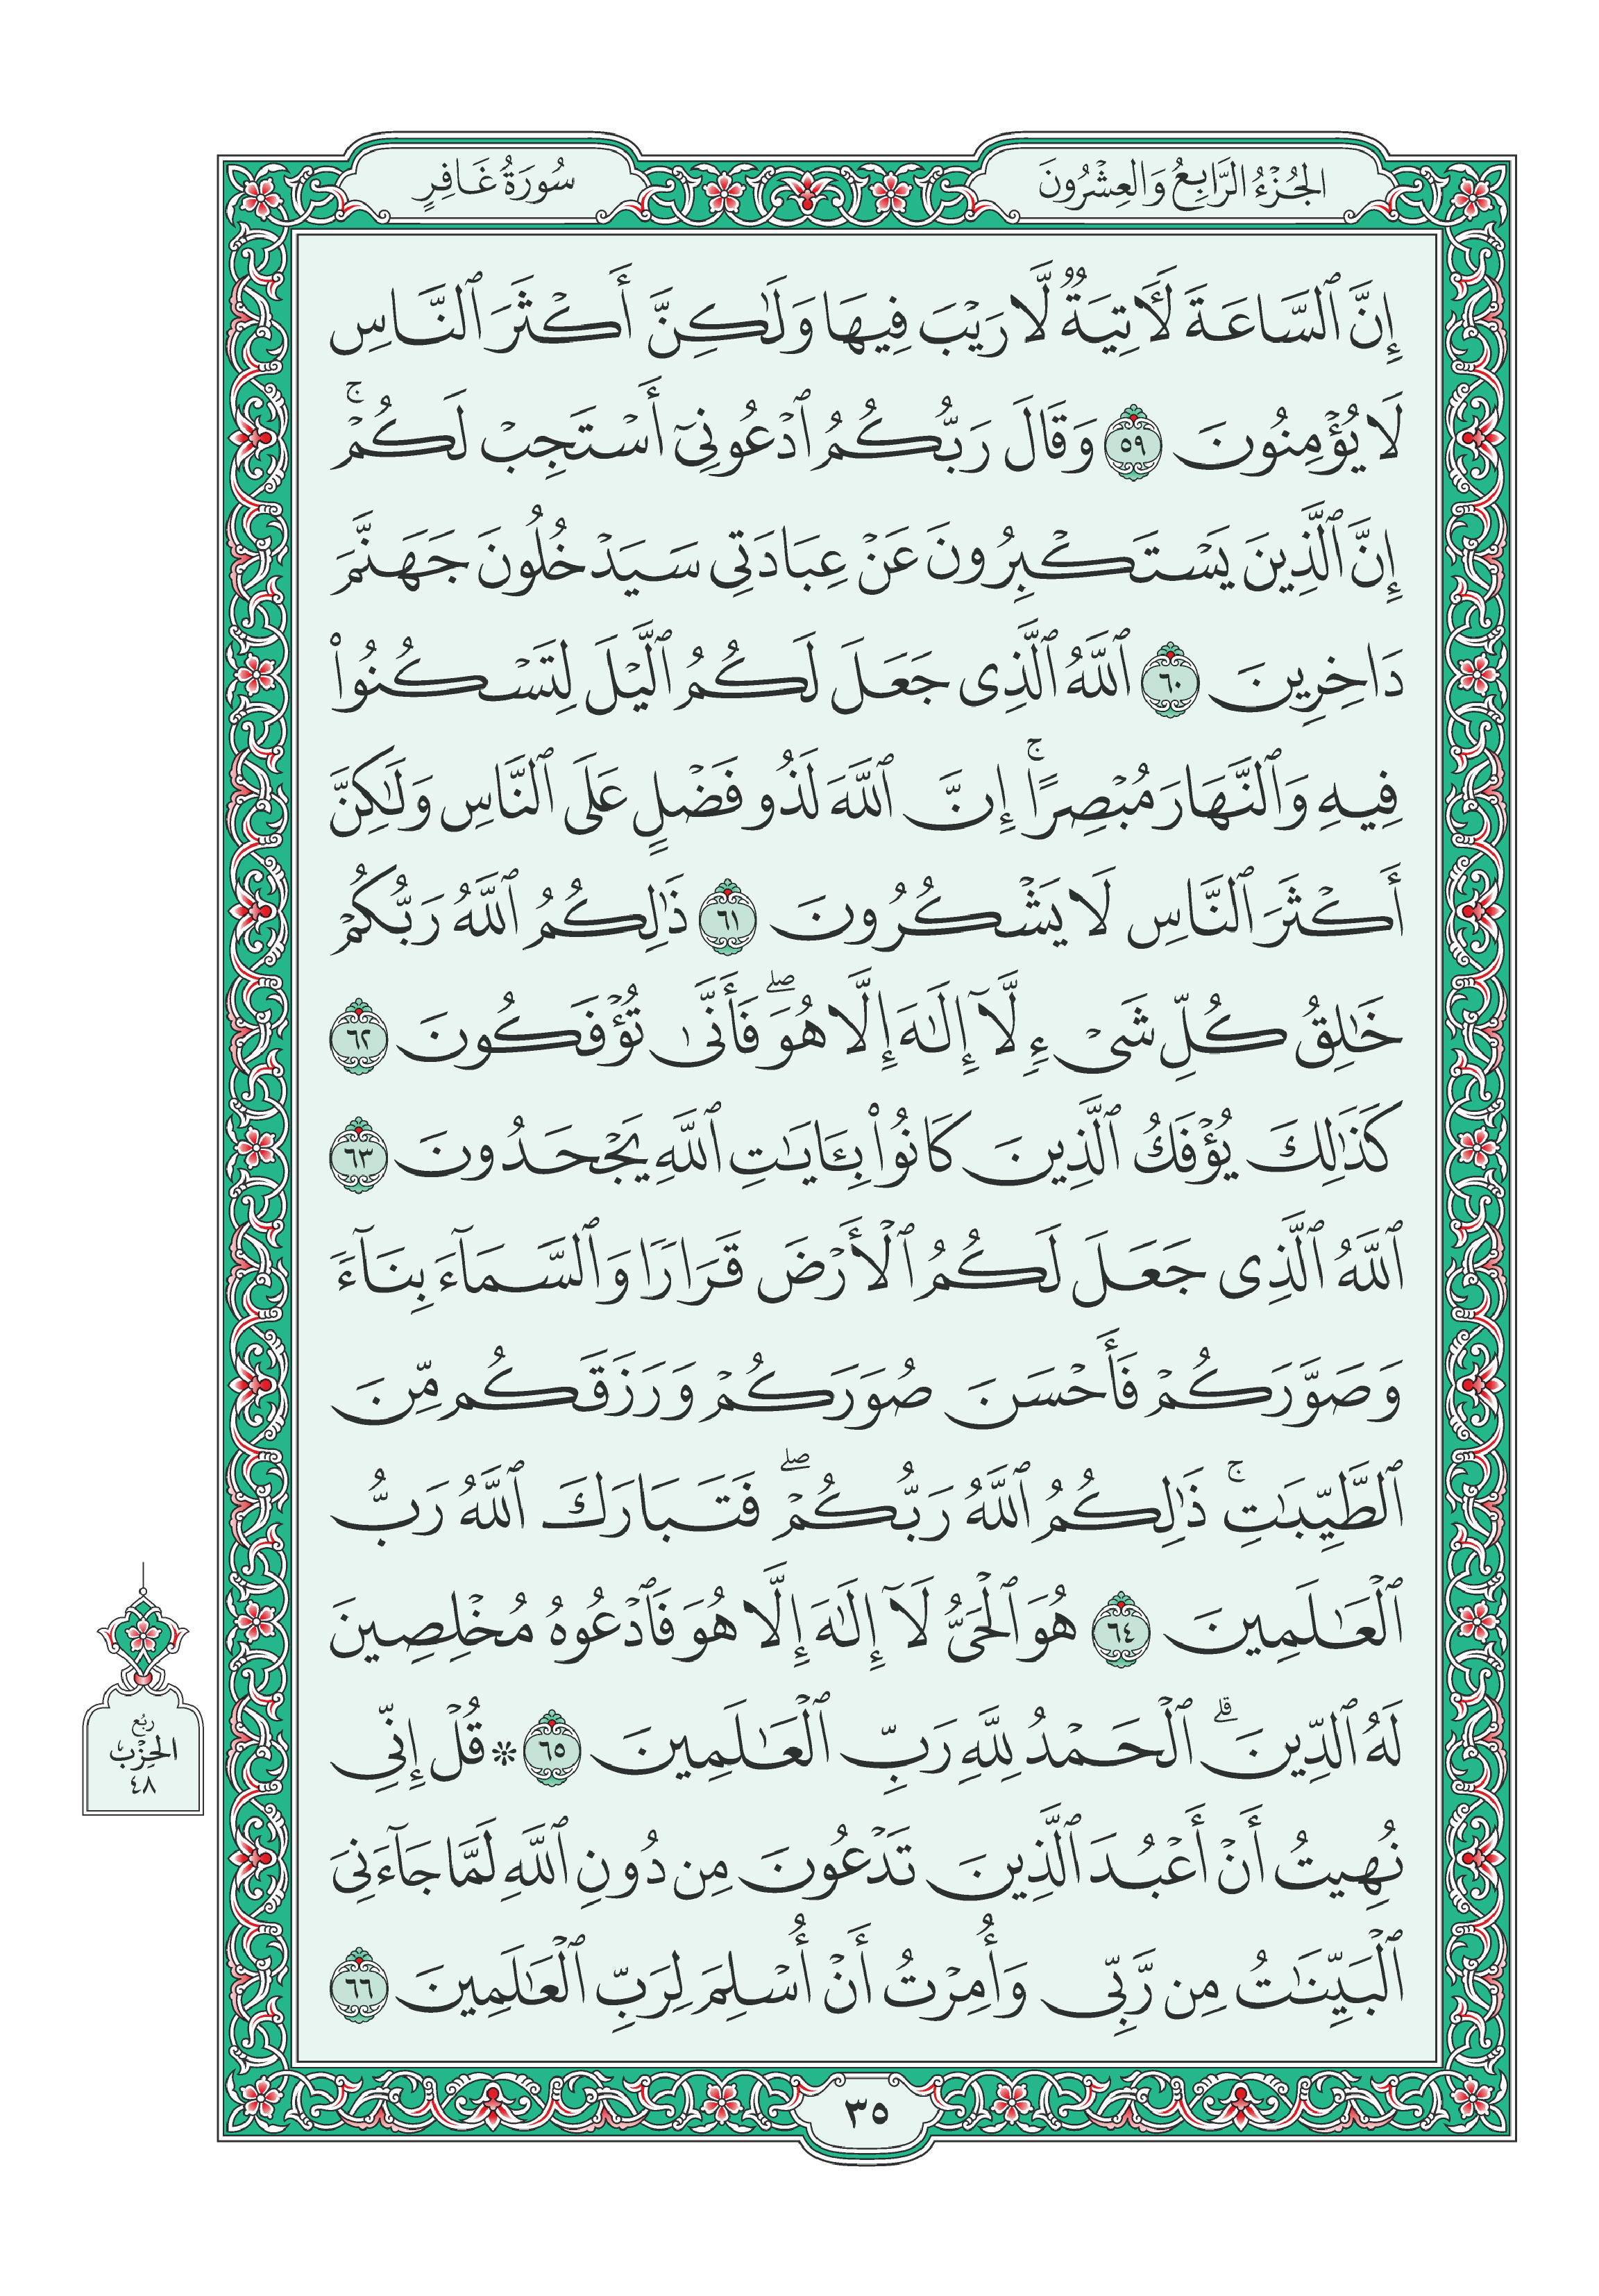 الجُزْءُ الرَّابِعُ وَالعِشْرُونَ
سُورَةُ غَافِرٍ
إِنَّ ٱلسَّاعَةَ لَأٓتِيَةٞ لَّا رَيۡبَ فِيهَا وَلَٰكِنَّ أَكۡثَرَ ٱلنَّاسِ
لَا يُؤۡمِنُونَ ٥٩ وَقَالَ رَبُّكُمُ ٱدۡعُونِيٓ أَسۡتَجِبۡ لَكُمۡۚ
إِنَّ ٱلَّذِينَ يَسۡتَكۡبِرُونَ عَنۡ عِبَادَتِي سَيَدۡخُلُونَ جَهَنَّمَ
دَاخِرِينَ ٦٠ ٱللَّهُ ٱلَّذِي جَعَلَ لَكُمُ ٱلَّيۡلَ لِتَسۡكُنُواْ
فِيهِ وَٱلنَّهَارَ مُبۡصِرًاۚ إِنَّ ٱللَّهَ لَذُو فَضۡلٍ عَلَى ٱلنَّاسِ وَلَٰكِنَّ
أَكۡثَرَ ٱلنَّاسِ لَا يَشۡكُرُونَ ٦١ ذَٰلِكُمُ ٱللَّهُ رَبُّكُمۡ
خَٰلِقُ كُلِّ شَيۡءٖ لَّآ إِلَٰهَ إِلَّا هُوَۖ فَأَنَّىٰ تُؤۡفَكُونَ ٦٢
كَذَٰلِكَ يُؤۡفَكُ ٱلَّذِينَ كَانُواْ بِـَٔايَٰتِ ٱللَّهِ يَجۡحَدُونَ ٦٣
ٱللَّهُ ٱلَّذِي جَعَلَ لَكُمُ ٱلۡأَرۡضَ قَرَارٗا وَٱلسَّمَآءَ بِنَآءٗ
وَصَوَّرَكُمۡ فَأَحۡسَنَ صُوَرَكُمۡ وَرَزَقَكُم مِّنَ
ٱلطَّيِّبَٰتِۚ ذَٰلِكُمُ ٱللَّهُ رَبُّكُمۡۖ فَتَبَارَكَ ٱللَّهُ رَبُّ
ٱلۡعَٰلَمِينَ ٦٤ هُوَ ٱلۡحَيُّ لَآ إِلَٰهَ إِلَّا هُوَ فَٱدۡعُوهُ مُخۡلِصِينَ
لَهُ ٱلدِّينَۗ ٱلۡحَمۡدُ لِلَّهِ رَبِّ ٱلۡعَٰلَمِينَ ٦٥ ۞ قُلۡ إِنِّي
نُهِيتُ أَنۡ أَعۡبُدَ ٱلَّذِينَ تَدۡعُونَ مِن دُونِ ٱللَّهِ لَمَّا جَآءَنِيَ
ٱلۡبَيِّنَٰتُ مِن رَّبِّي وَأُمِرۡتُ أَنۡ أُسۡلِمَ لِرَبِّ ٱلۡعَٰلَمِينَ ٦٦
رُبع
الحِزْب
٤٨
٣٥